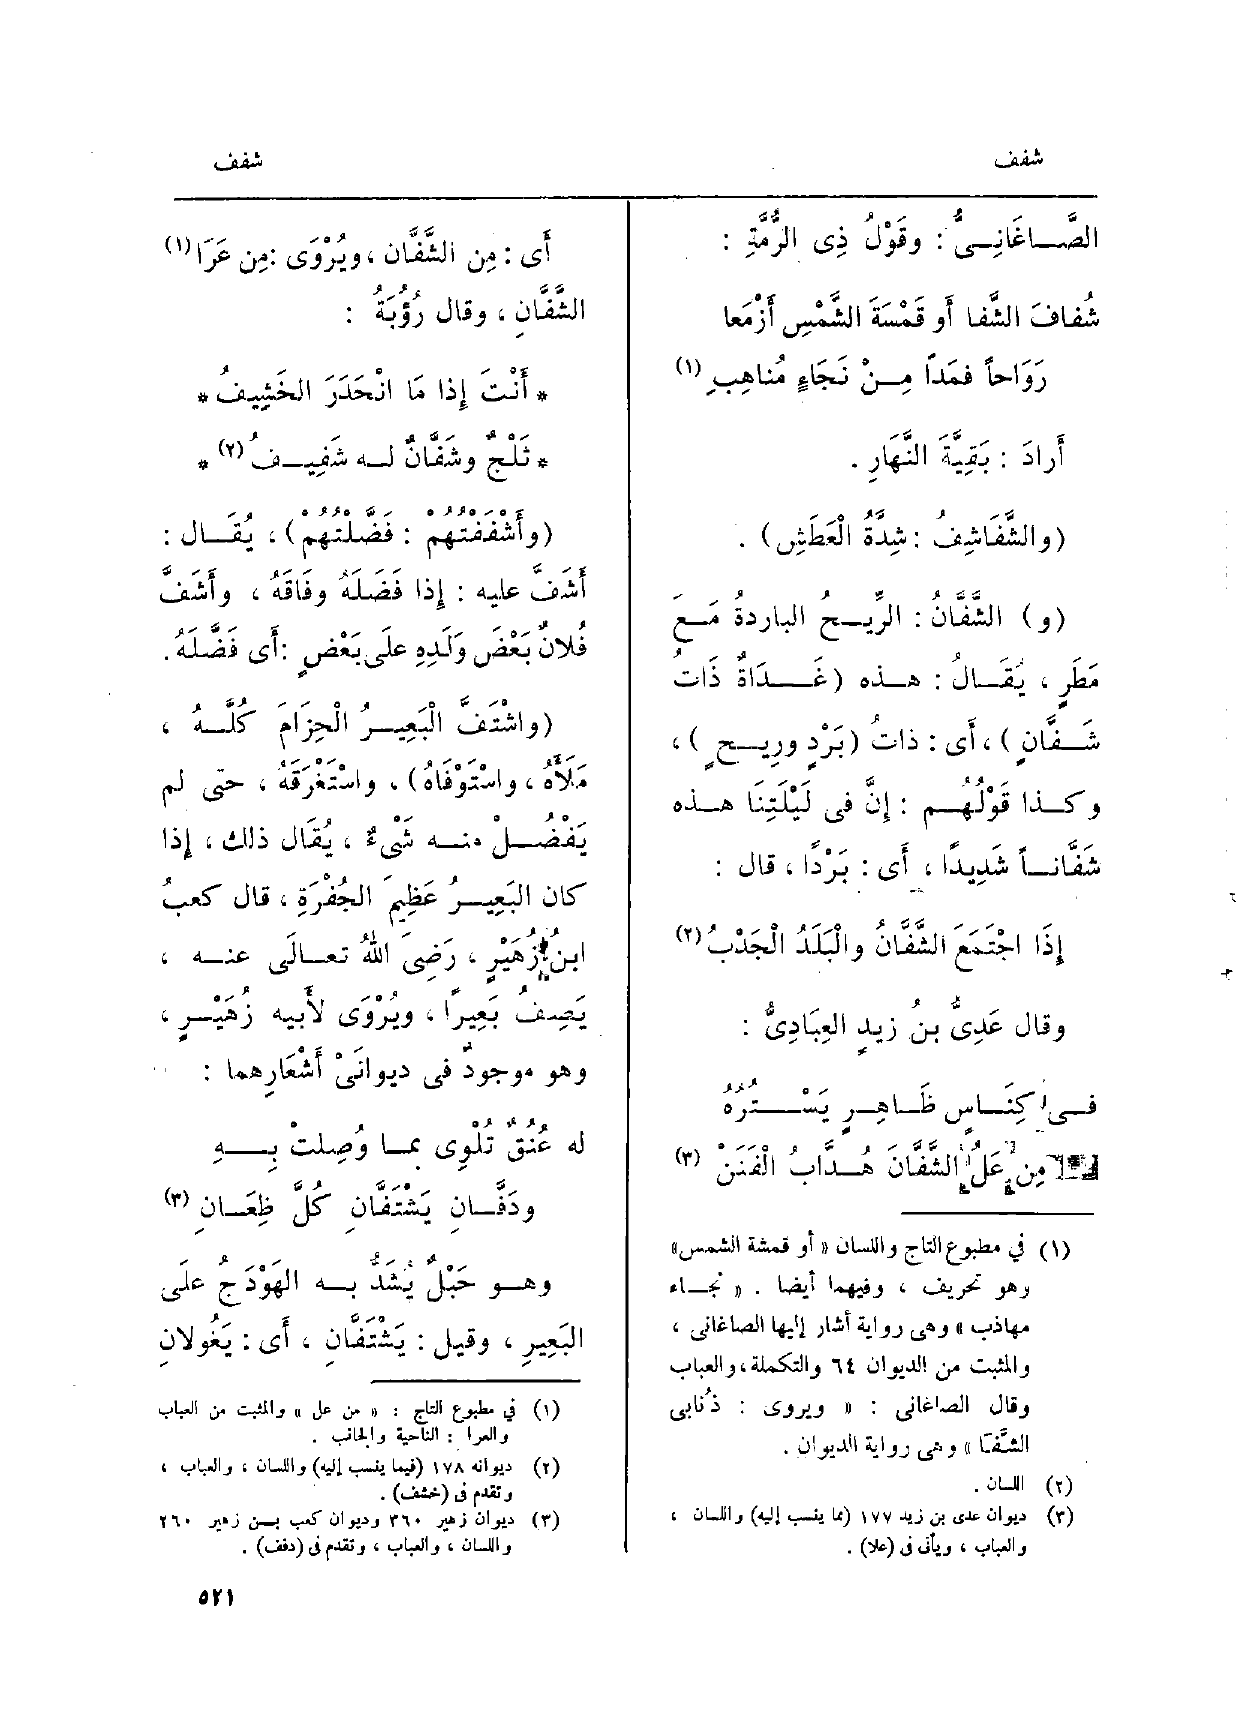 شفف
شفف
الصَّاغَانِىُّ : وقَوْلُ ذِى الرُّمَّةِ :
شُفافَ الشَّفا أو قَمْسَةَ الشَّمْسِ أَزْمَعا
رَوَاحاً فمَدًّا مِنْ نَجَاءٍ مُناهِبِ (١)
أَرادَ : بَقِيَّةَ النَّهَارِ .
(والشَّفَاشِفُ : شِدَّةُ الْعَطَشِ) .
(و) الشَّفَّانُ : الرِّيحُ الباردةُ مَعَ
مَطَرٍ ، يُقَالُ : هذه (غَدَاةٌ ذَاتُ
شَفَّانٍ) ، أى : ذاتُ (بَرْدٍ ورِيحٍ) ،
وكذا قَوْلُهُم : إنَّ فى لَيْلَتِنَا هذه
شَفَّاناً شَدِيدًا ، أى : بَرْدًا ، قال :
إِذَا اجْتَمَعَ الشَّفَّانُ والْبَلَدُ الْجَدْبُ (٢)
وقال عَدِىُّ بنُ زيدٍ العِبَادِىُّ :
فى كِنَاسٍ ظَاهِرٍ يَسْتُرُهُ
مِن عَلُ الشَّفَّانَ هُدَّابُ الْفَنَنْ (٣)
(١) في مطبوع التاج واللسان « أو قمشة الشمس»
وهو تحريف ، وفيهما أيضا . « نجاء
مهاذب » وهى رواية أشار إليها الصاغانى ،
والمثبت من الديوان ٦٤ والتكملة ، والعباب
وقال الصاغانى : « ويروى : ذُنابى
الشَّفَا » وهى رواية الديوان .
(٢) اللسان .
(٣) ديوان عدى بن زيد ١٧٧ (مما ينسب إليه) واللسان ،
والعباب ، ويأتى فى (علا) .
أَى : مِن الشَّفَّان ، ويُرْوَى : مِن عَرَا (١)
الشَّفَّانِ ، وقال رُؤْبَةُ :
* أَنْتَ إِذا مَا انْحَدَرَ الخَشِيفُ *
* ثَلْجٌ وشَفَّانٌ له شَفِيفُ (٢) *
(وأَشْفَفْتُهُمْ : فَضَّلْتُهُمْ) ، يُقَال :
أَشَفَّ عليه : إذا فَضَلَهُ وفَاقَهُ ، وأَشَفَّ
فُلانٌ بَعْضَ وَلَدِهِ على بَعْضٍ : أى فَضَّلَهُ .
(واشْتَفَّ الْبَعِيرُ الْحِزَامَ كُلَّهُ ،
مَلَأَهُ ، واسْتَوْفَاهُ) ، واسْتَغْرَقَهُ ، حتى لم
يَفْضُلْ منه شَىْءٌ ، يُقَال ذلك ، إذا
كان البَعِيرُ عَظِيمَ الجُفْرَةِ ، قال كعبُ
ابنُ زُهَيْرٍ ، رَضِىَ اللهُ تعالَى عنه ،
يَصِفُ بَعِيرًا ، ويُرْوَى لأَبيه زُهَيْرٍ ،
وهو موجودٌ فى ديوانَىْ أَشْعَارِهما :
له عُنُقٌ تُلْوِى بما وُصِلَتْ بِهِ
ودَفَّانِ يَشْتَفَّانِ كُلَّ ظِعَانِ (٣)
وهو حَبْلٌ يُشَدُّ به الهَوْدَجُ علَى
البَعِيرِ ، وقيل : يَشْتَفَّانِ ، أى : يَغُولانِ
(١) في مطبوع التاج : « من عل » والمثبت من العباب
والعرا : الناحية والجانب .
(٢) ديوانه ١٧٨ (فيما ينسب إليه) واللسان ، والعباب ،
وتقدم فى (خشف) .
(٣) ديوان زهير ٣٦٠ وديوان كعب بن زهير ٢٦٠
واللسان ، والعباب ، وتقدم فى (دفف) .
٥٢١